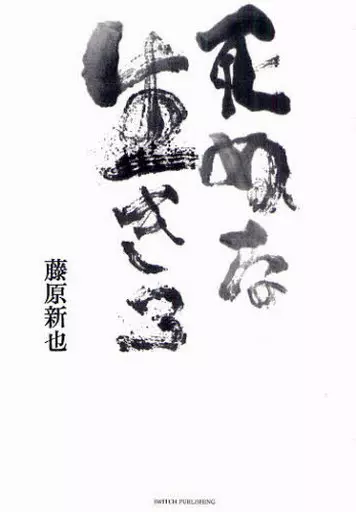 死ぬな
生きろ
藤原新也
SWITCH PUBLISHING